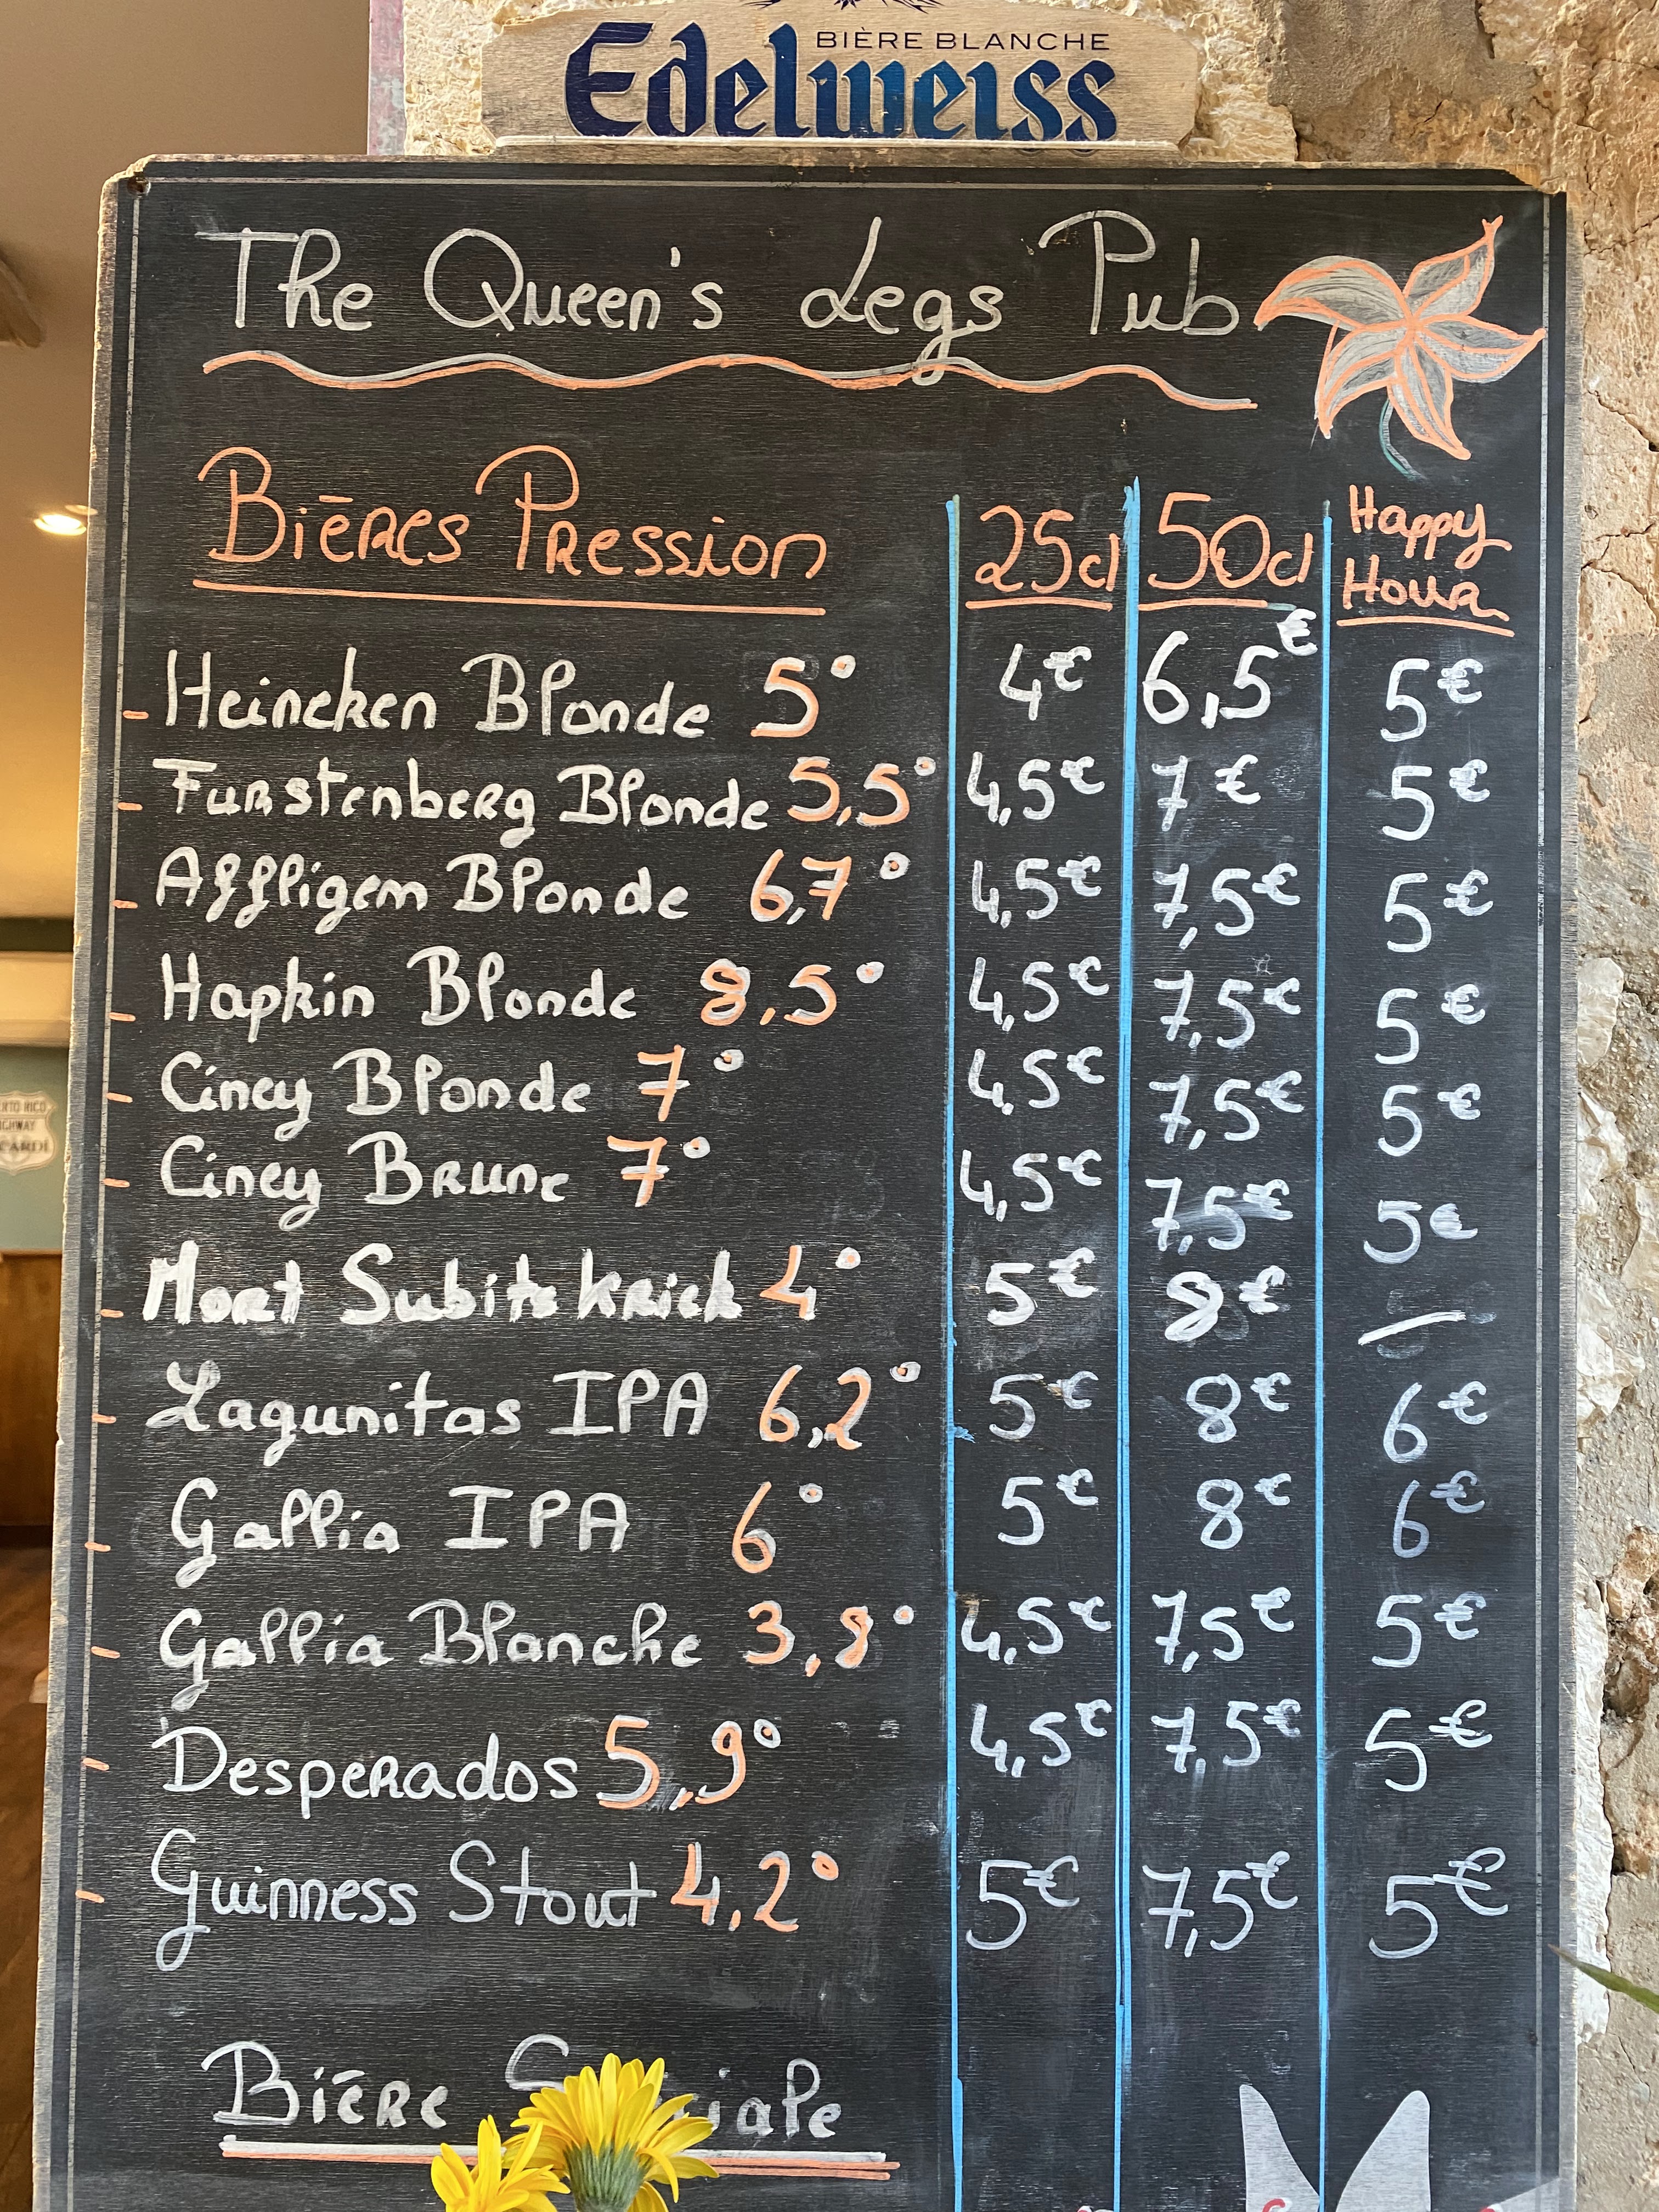 BIÈRE BLANCHE
Edelweiss
The Queen's Legs Pub
Bières Pression 25cl 50cl Happy Hour
- Heineken Blonde 5° 4€ 6,5€ 5€
- Furstenberg Blonde 5,5° 4,5€ 7€ 5€
- Affligem Blonde 6,7° 4,5€ 7,5€ 5€
- Hapkin Blonde 8,5° 4,5€ 7,5€ 5€
- Ciney Blonde 7° 4,5€ 7,5€ 5€
- Ciney Brune 7° 4,5€ 7,5€ 5€
- Mort Subite Kriek 4° 5€ 8€ —
- Lagunitas IPA 6,2° 5€ 8€ 6€
- Gallia IPA 6° 5€ 8€ 6€
- Gallia Blanche 3,8° 4,5€ 7,5€ 5€
- Desperados 5,9° 4,5€ 7,5€ 5€
- Guinness Stout 4,2° 5€ 7,5€ 5€
Bière